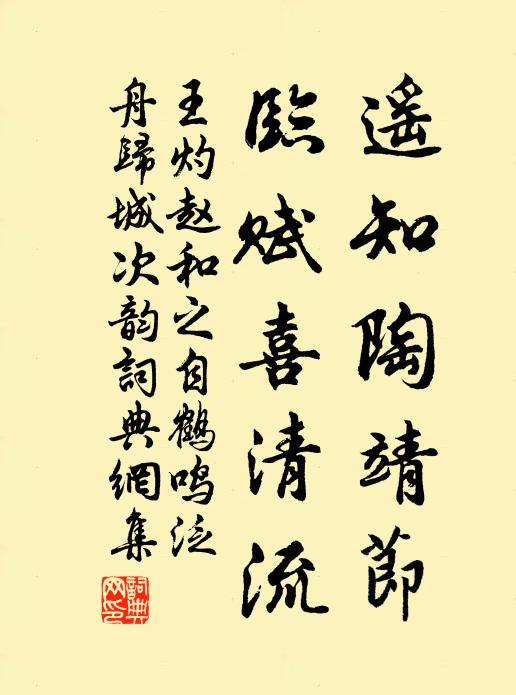 遥知陶靖節
臨賦喜清流
王灼赵和之自鶴鸣泛
舟歸城次韵詞典網集
詞典
网印